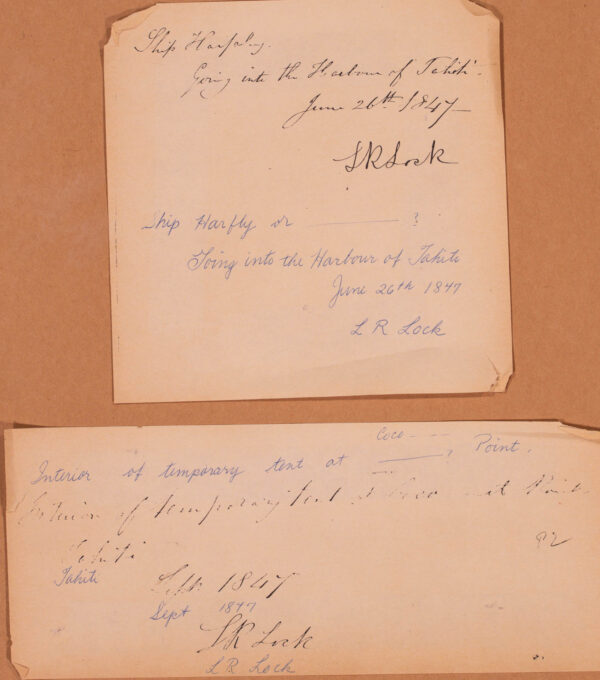 Ship
Going into the Harbour of Tahiti.
June 26th 1847
L R Lock
Ship Harfly or ——— ?
Going into the Harbour of Tahiti
June 26th 1847
L R Lock
Coco - - -
Interior of temporary tent at ——— ? Point.
Interior of temporary tent at Coco
Tahiti
Tahiti
Sept 1847
Sept 1847
L R Lock
L R Lock